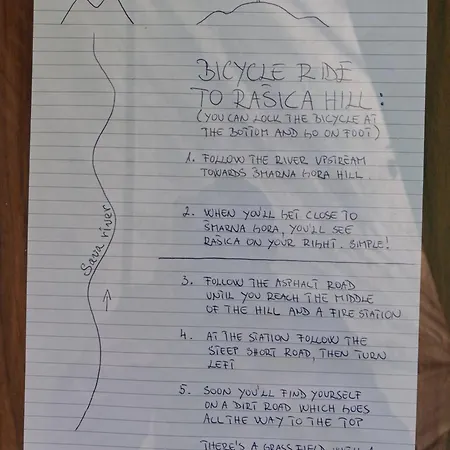 BICYCLE RIDE
TO RAŠICA HILL:
(YOU CAN LOCK THE BICYCLE AT
THE BOTTOM AND GO ON FOOT)
1. FOLLOW THE RIVER UPSTREAM
TOWARDS ŠMARNA GORA HILL.
2. WHEN YOU'LL GET CLOSE TO
ŠMARNA GORA, YOU'LL SEE
RAŠICA ON YOUR RIGHT. SIMPLE!
Sava river
3. FOLLOW THE ASPHALT ROAD
UNTIL YOU REACH THE MIDDLE
OF THE HILL AND A FIRE STATION
4. AT THE STATION FOLLOW THE
STEEP SHORT ROAD, THEN TURN
LEFT
5. SOON YOU'LL FIND YOURSELF
ON A DIRT ROAD WHICH GOES
ALL THE WAY TO THE TOP
THERE'S A GRASS FIELD WITH A